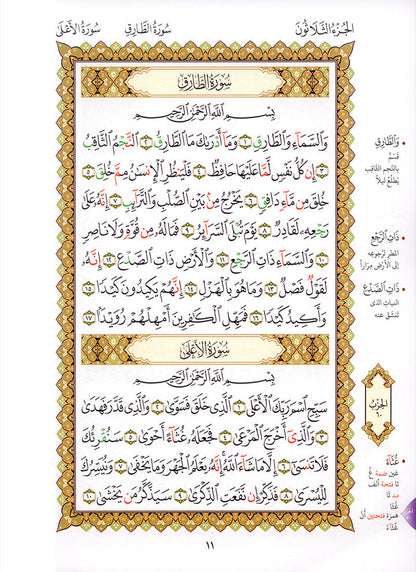 الجُزءُ الثَّلَاثُونَ سُورَةُ الطَّارِقِ سُورَةُ الأَعْلَى
سُورَةُ الطَّارِقِ
بِسْمِ اللَّهِ الرَّحْمَٰنِ الرَّحِيمِ
وَالسَّمَاءِ وَالطَّارِقِ ١ وَمَا أَدْرَىٰكَ مَا الطَّارِقُ ٢ النَّجْمُ الثَّاقِبُ
٣ إِن كُلُّ نَفْسٍ لَّمَّا عَلَيْهَا حَافِظٌ ٤ فَلْيَنظُرِ الْإِنسَٰنُ مِمَّ خُلِقَ ٥
خُلِقَ مِن مَّاءٍ دَافِقٍ ٦ يَخْرُجُ مِن بَيْنِ الصُّلْبِ وَالتَّرَائِبِ ٧ إِنَّهُ عَلَىٰ
رَجْعِهِ لَقَادِرٌ ٨ يَوْمَ تُبْلَى السَّرَائِرُ ٩ فَمَا لَهُ مِن قُوَّةٍ وَلَا نَاصِرٍ
١٠ وَالسَّمَاءِ ذَاتِ الرَّجْعِ ١١ وَالْأَرْضِ ذَاتِ الصَّدْعِ ١٢ إِنَّهُ
لَقَوْلٌ فَصْلٌ ١٣ وَمَا هُوَ بِالْهَزْلِ ١٤ إِنَّهُمْ يَكِيدُونَ كَيْدًا ١٥
وَأَكِيدُ كَيْدًا ١٦ فَمَهِّلِ الْكَٰفِرِينَ أَمْهِلْهُمْ رُوَيْدًا ١٧
سُورَةُ الأَعْلَىٰ
بِسْمِ اللَّهِ الرَّحْمَٰنِ الرَّحِيمِ
سَبِّحِ اسْمَ رَبِّكَ الْأَعْلَى ١ الَّذِي خَلَقَ فَسَوَّىٰ ٢ وَالَّذِي قَدَّرَ فَهَدَىٰ
٣ وَالَّذِي أَخْرَجَ الْمَرْعَىٰ ٤ فَجَعَلَهُ غُثَاءً أَحْوَىٰ ٥ سَنُقْرِئُكَ
فَلَا تَنسَىٰ ٦ إِلَّا مَا شَاءَ اللَّهُ إِنَّهُ يَعْلَمُ الْجَهْرَ وَمَا يَخْفَىٰ ٧ وَنُيَسِّرُكَ
لِلْيُسْرَىٰ ٨ فَذَكِّرْ إِن نَّفَعَتِ الذِّكْرَىٰ ٩ سَيَذَّكَّرُ مَن يَخْشَىٰ ١٠
• وَالطَّارِقِ
قَسَمٌ
بالنجم الثاقب
يَطْلُعُ ليلاً
• ذَاتِ الرَّجْعِ
المطر لرجوعه
إلى الأرض مراراً
• ذَاتِ الصَّدْعِ
النبات الذي
تنشق عنه
الحزب
• غُثَآءً
غين ضمة غُ
ثا فتحة ألف
مد ثَا
غُثَا
همزة فتحتين ءً
غُثَآءً
١١